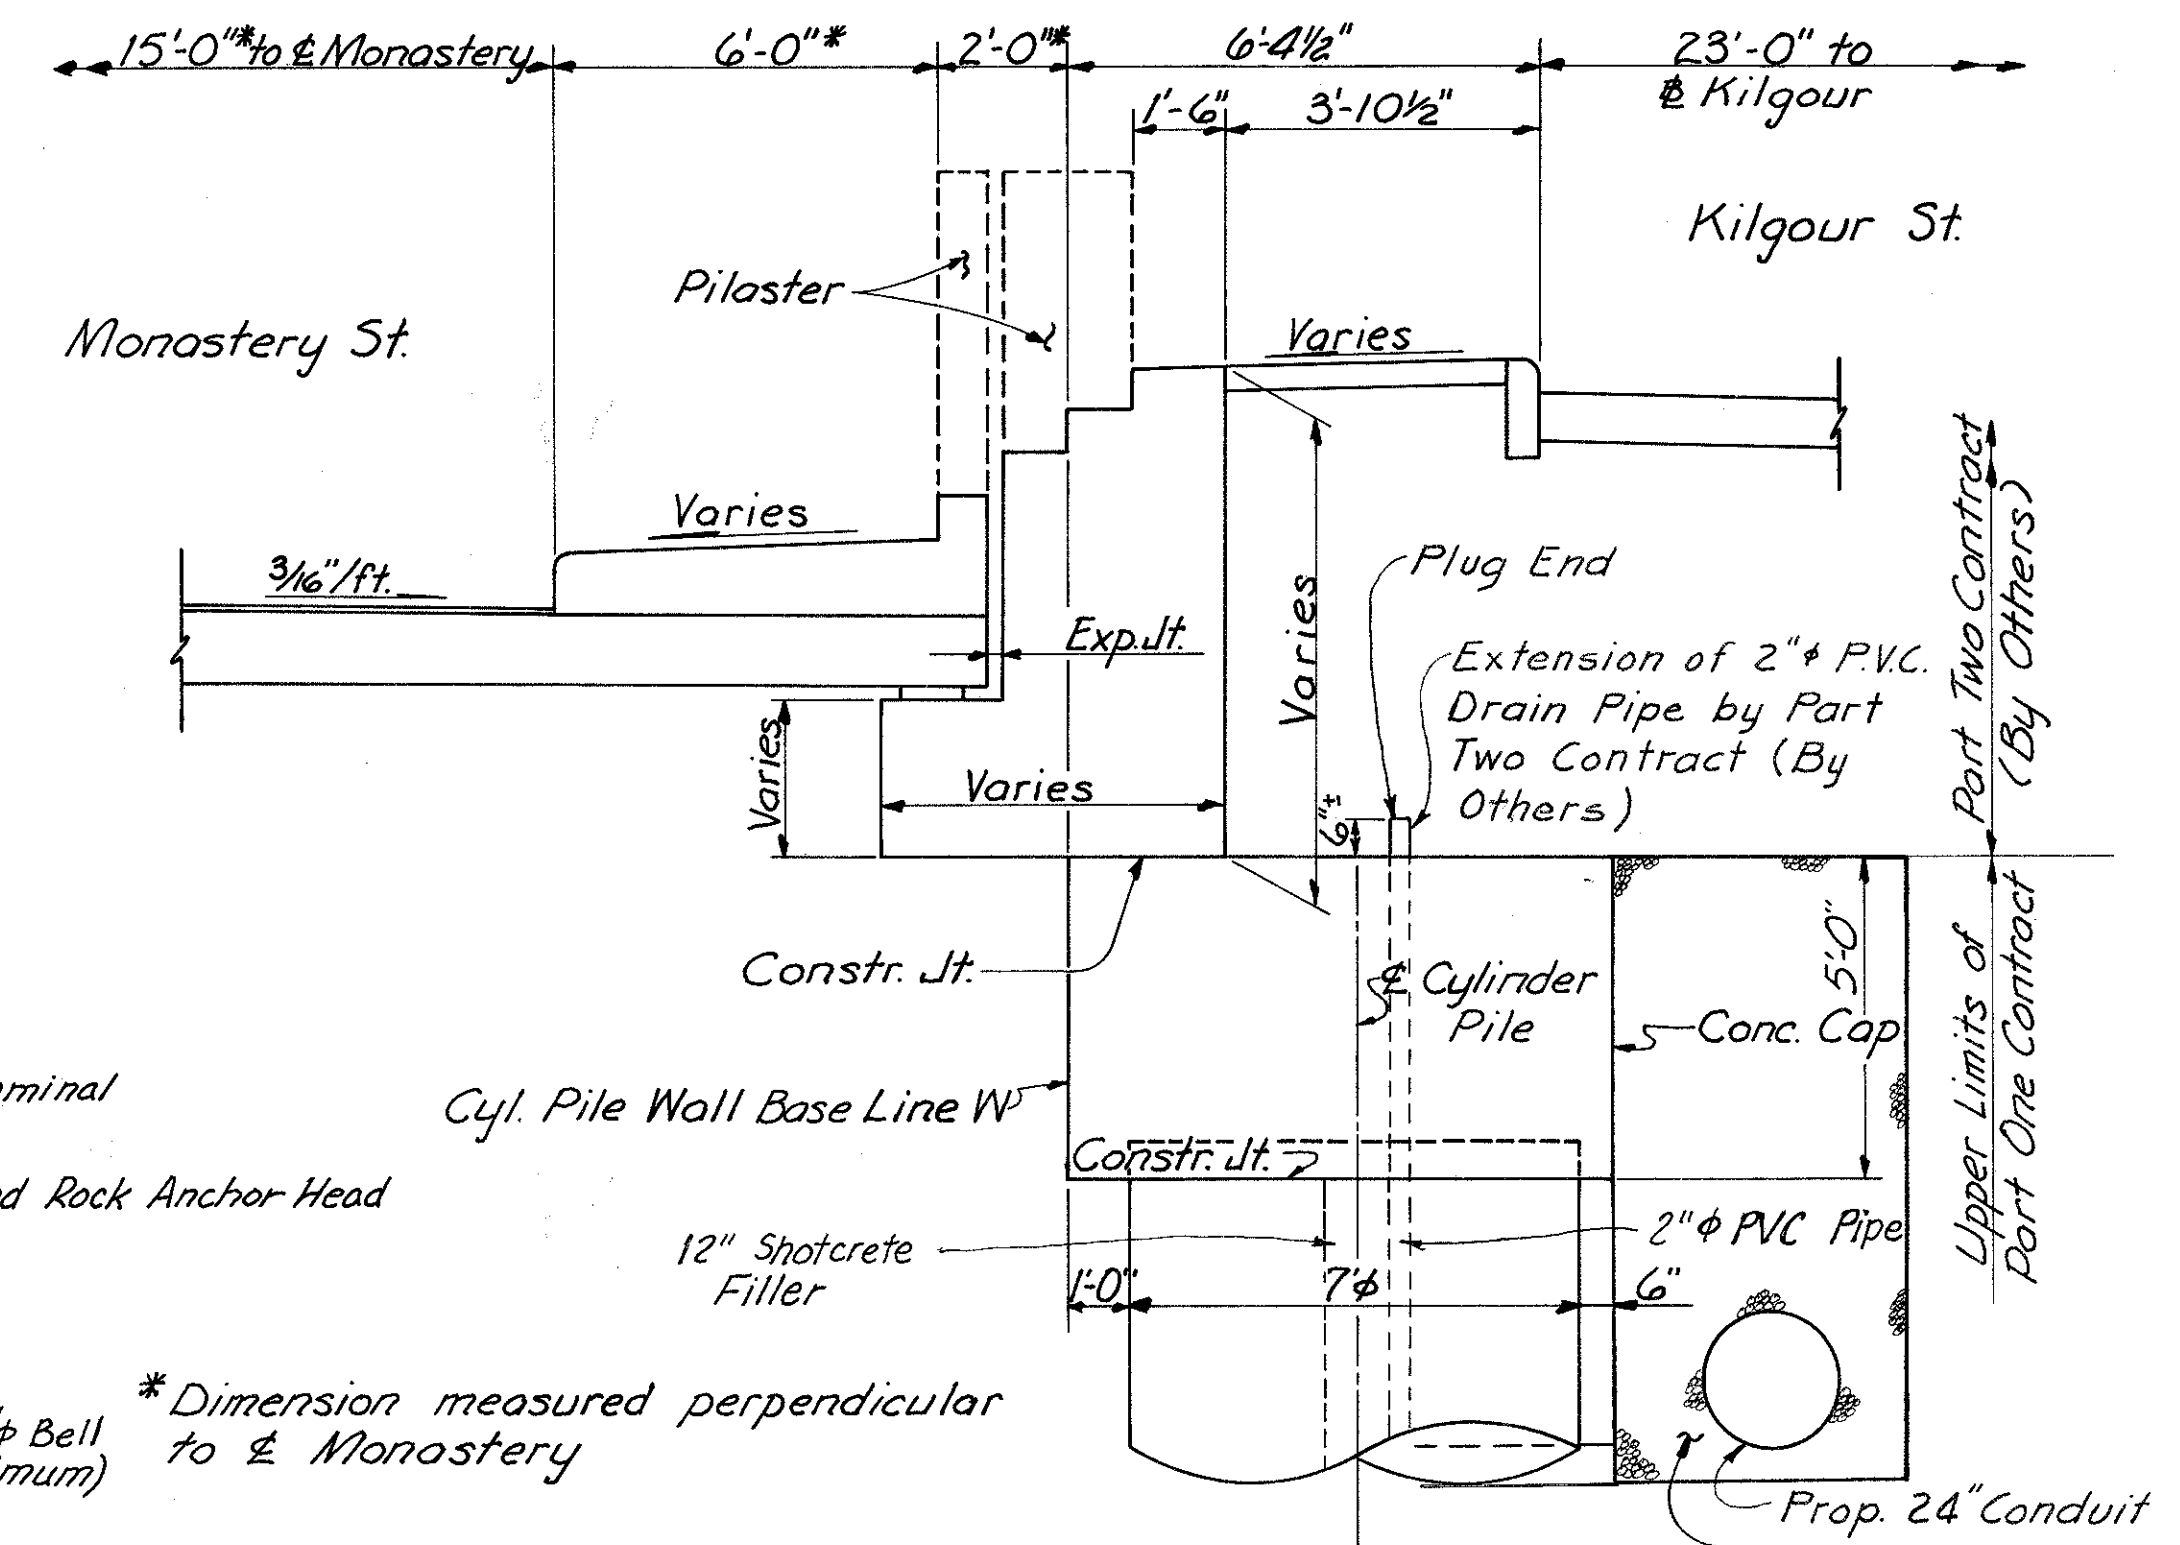 15'-0"* to ℄ Monastery
6'-0"*
2'-0"*
6'-4½"
23'-0" to
℄ Kilgour
1'-6"
3'-10½"
Kilgour St.
Pilaster
Monastery St.
Varies
Varies
3/16"/ft.
Plug End
Exp. Jt.
Varies
Extension of 2"ϕ P.V.C.
Drain Pipe by Part
Two Contract (By
Others)
Part Two Contract
(By Others)
Varies
Varies
6"±
Constr. Jt.
℄ Cylinder
Pile
5'-0"
Conc. Cap
Upper Limits of
Part One Contract
minal
Cyl. Pile Wall Base Line W
Constr. Jt.
d Rock Anchor Head
12" Shotcrete
Filler
2"ϕ PVC Pipe
1'-0"
7'ϕ
6"
* Dimension measured perpendicular
to ℄ Monastery
ϕ Bell
mum)
Prop. 24" Conduit